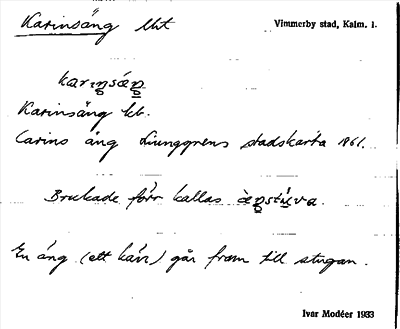 Karinsäng lht Vimmerby stad, Kalm. l.
karinsáŋ
Karinsäng kb.
Carins äng Ljunggrens stadskarta 1861.
Brukade förr kallas àŋstúva.
En äng (ett kärr) går fram till stugan.
Ivar Modéer 1933